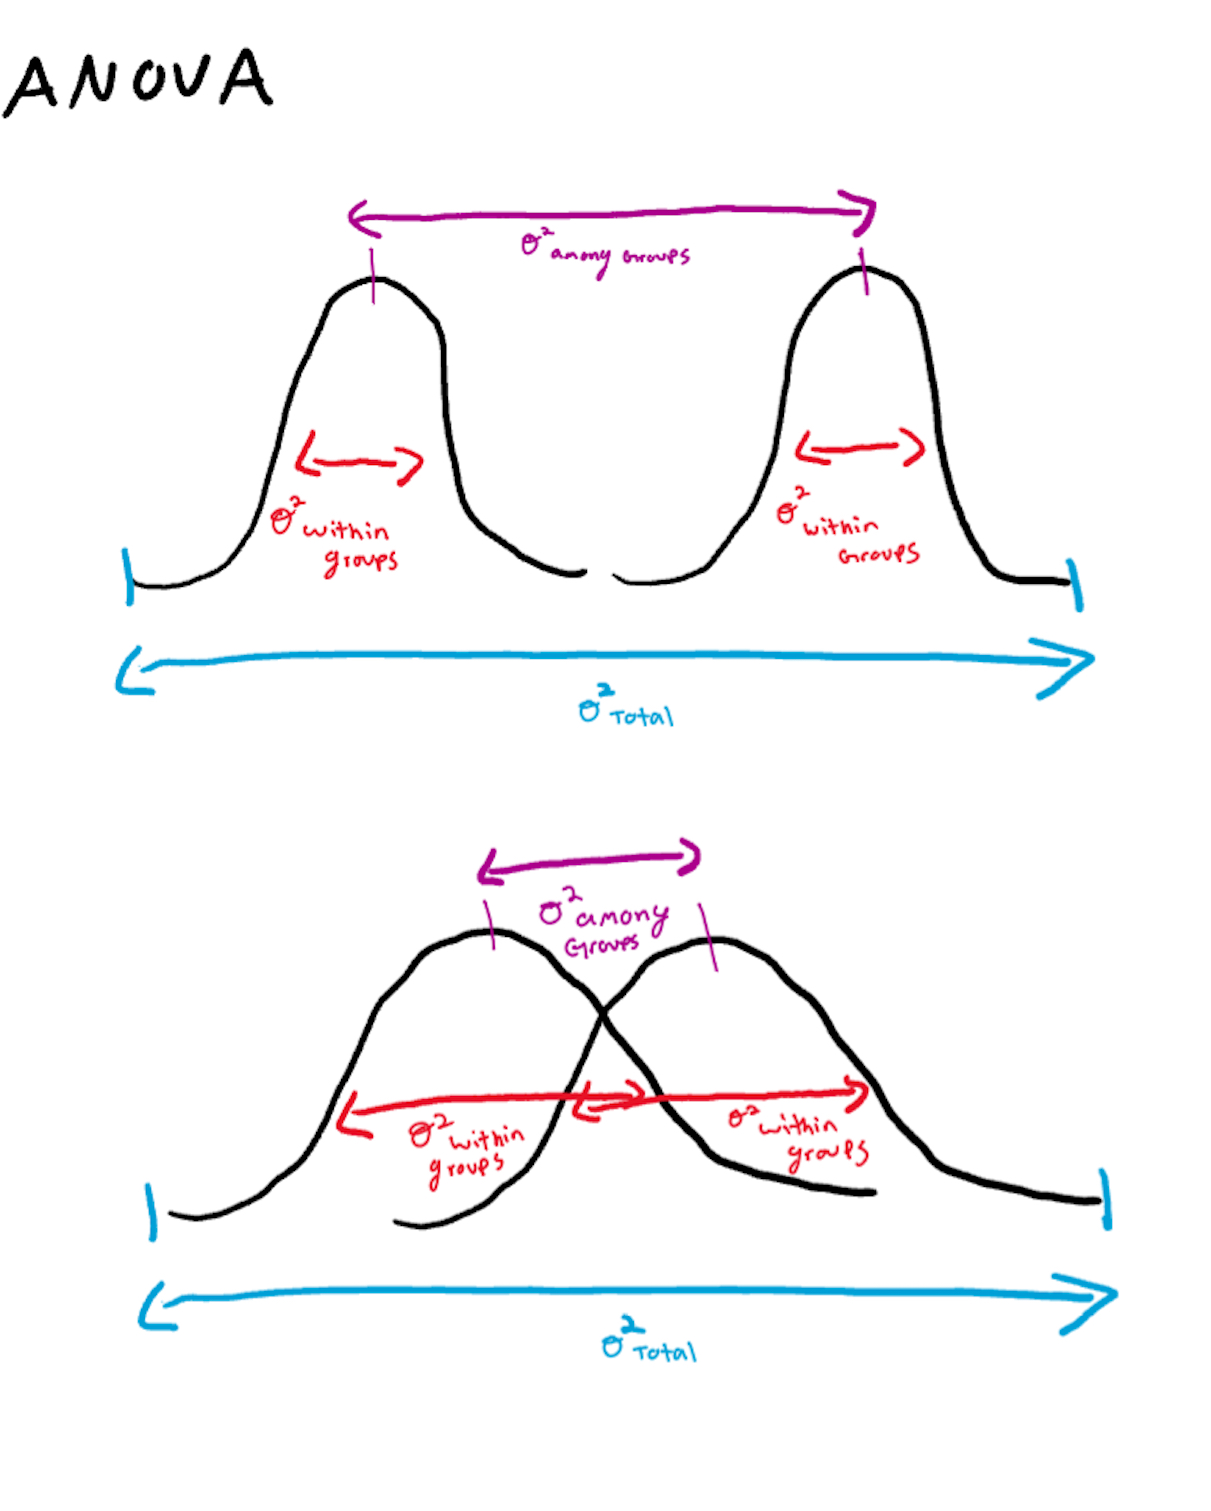 ANOVA
σ² among Groups
σ² within
groups
σ² within
Groups
σ² Total
σ² among
Groups
σ² within
groups
σ² within
groups
σ² Total